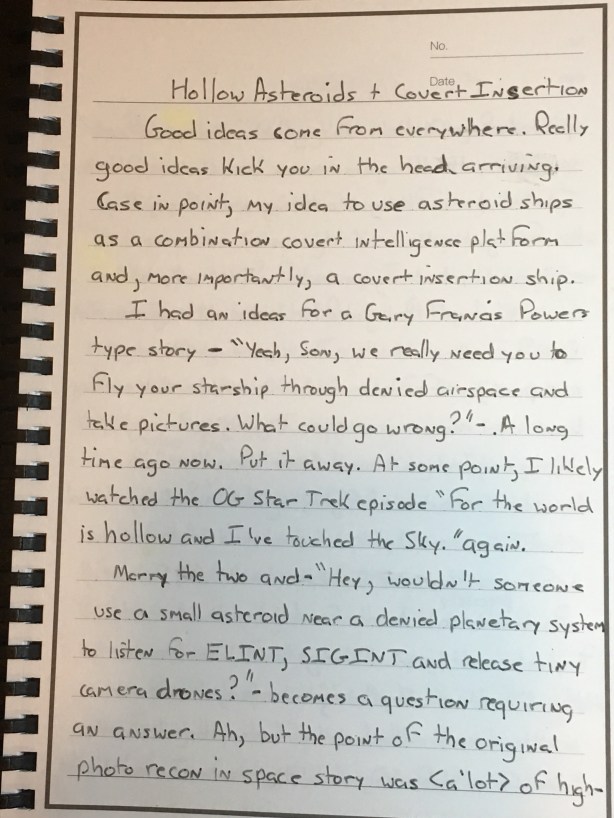 No.
Date
Hollow Asteroids + Covert Insertion
Good ideas come from everywhere. Really
good ideas kick you in the head arriving.
Case in point, my idea to use asteroid ships
as a combination covert intelligence platform
and, more importantly, a covert insertion ship.
I had an ideas for a Gary Francis Powers
type story - "Yeah, Son, we really need you to
fly your starship through denied airspace and
take pictures. What could go wrong?"-. A long
time ago now. Put it away. At some point, I likely
watched the OG Star Trek episode "For the world
is hollow and I've touched the Sky." again.
Marry the two and-"Hey, wouldn't someone
use a small asteroid near a denied planetary system
to listen for ELINT, SIGINT and release tiny
camera drones?"- becomes a question requiring
an answer. Ah, but the point of the original
photo recon in space story was <a'lot> of high-